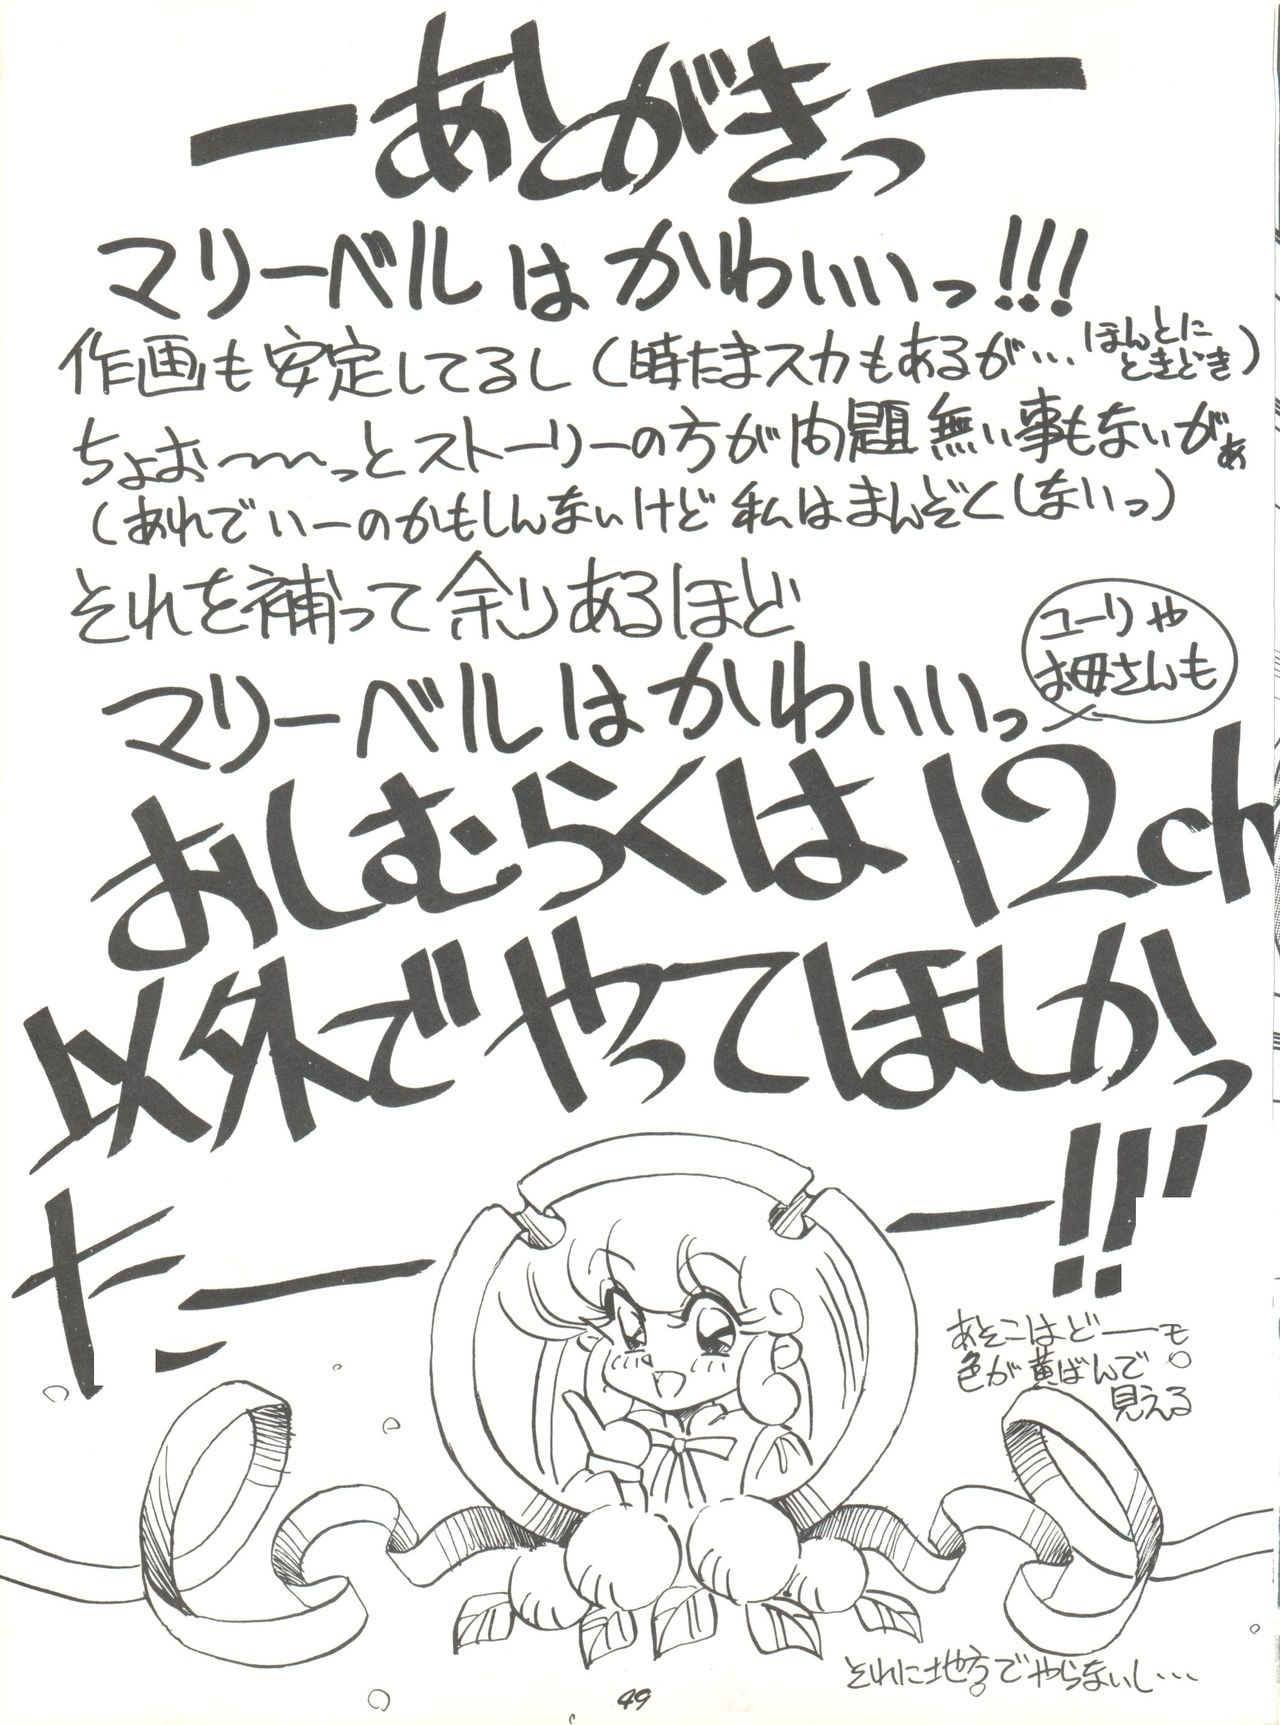 ーあとがきっー
マリーベルはかわいいっ!!!
作画も安定してるし(時たまスカもあるが…ほんとにときどき)
ちょお〜〜っとストーリーの方が問題無い事もないがぁ
(あれでいーのかもしんないけど私はまんぞくしないっ)
それを補って余りあるほど
マリーベルはかわいいっ
ユーリや
お母さんも
おしむらくは12ch
以外でやってほしかっ
たーー!!
あそこはどーも
色が黄ばんで
見える。
それに地方でやらないし…
49